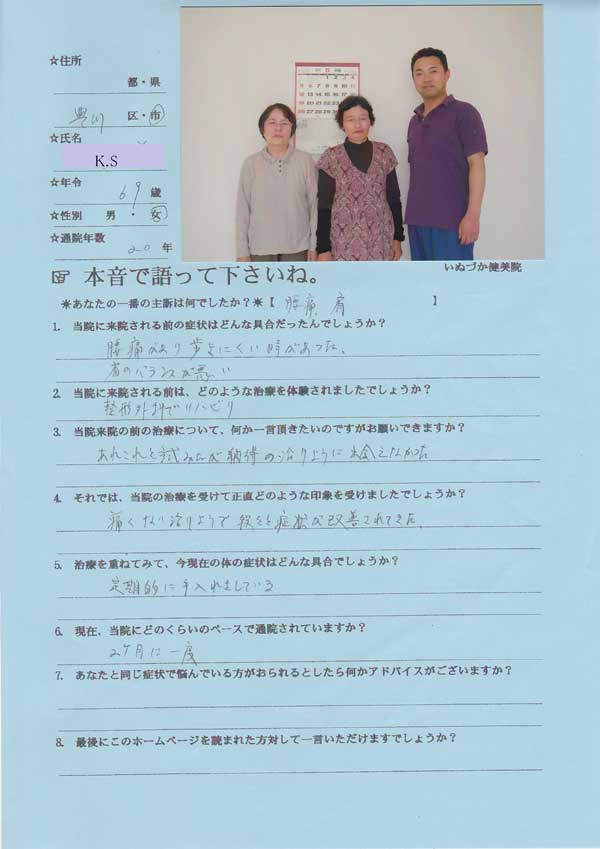 ☆住所
都・県
豊川 区・市
☆氏名
K.S
☆年令
69歳
☆性別 男・女
☆通院年数
20年
いぬづか健美院
☞ 本音で語って下さいね。
＊あなたの一番の主訴は何でしたか？＊【 腰痛 肩 】
1. 当院に来院される前の症状はどんな具合だったんでしょうか？
腰痛があり歩きにくい時があった、
肩のバランスが悪い
2. 当院に来院される前は、どのような治療を体験されましたでしょうか？
整形外科でリハビリ
3. 当院来院の前の治療について、何か一言頂きたいのですがお願いできますか？
あれこれと試みたが納得の治りように出会えなかった
4. それでは、当院の治療を受けて正直どのような印象を受けましたでしょうか？
痛くない治りようで段々と症状が改善されてきた、
5. 治療を重ねてみて、今現在の体の症状はどんな具合でしょうか？
定期的に手入れをしている
6. 現在、当院にどのくらいのペースで通院されていますか？
2ケ月に一度
7. あなたと同じ症状で悩んでいる方がおられるとしたら何かアドバイスがございますか？
8. 最後にこのホームページを読まれた方対して一言いただけますでしょうか？